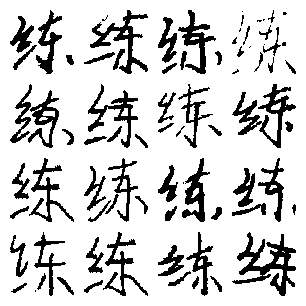 练练练练
练练练练
练练练练
练练练练